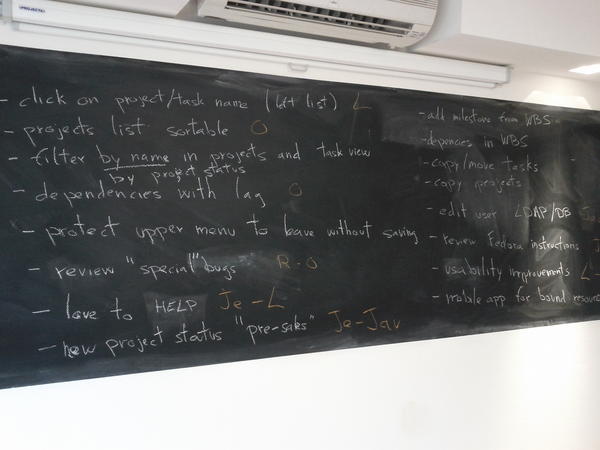 PROJECTA
- click on project/task name (left list) L
- projects list sortable O
- filter by name in projects and task view
by project status
- dependencies with lag O
- protect upper menu to leave without saving
- review "special" bugs R-O
- love to HELP Je-L
- new project status "pre-sales" Je-Jav
- add milestone from WBS
- depencies in WBS
- copy/move tasks
- copy projects
- edit user LDAP/DB
- review Fedora instructions
- usability improvements L-
- mobile app for bound resourc